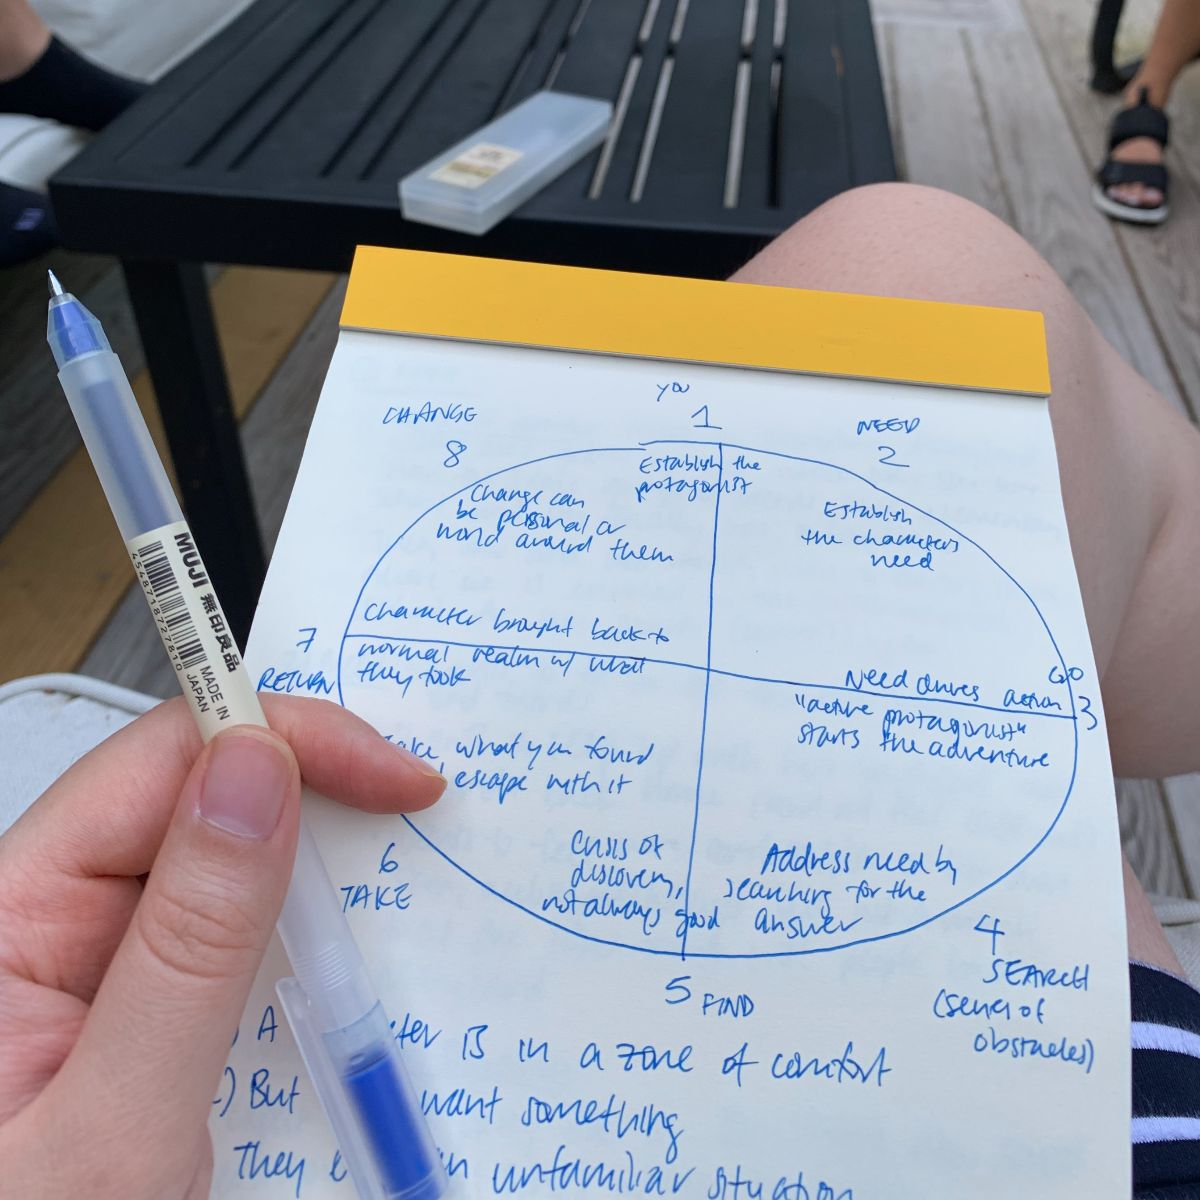 you
1
CHANGE
8
NEED
2
Establish the
protagonist
Change can
be personal or
world around them
Establish
the characters
need
Character brought back to
normal realm w/ what
they took
7
RETURN
GO
3
Need drives action
"active protagonist"
starts the adventure
what you found
escape with it
6
TAKE
Crisis of
discovery,
not always good
Address need by
searching for the
answer
4
SEARCH
(series of
obstacles)
5 FIND
) A
IS in a zone of comfort
) But
want something
they
unfamiliar situation
MUJI 無印良品
MADE IN
JAPAN
4548718727810